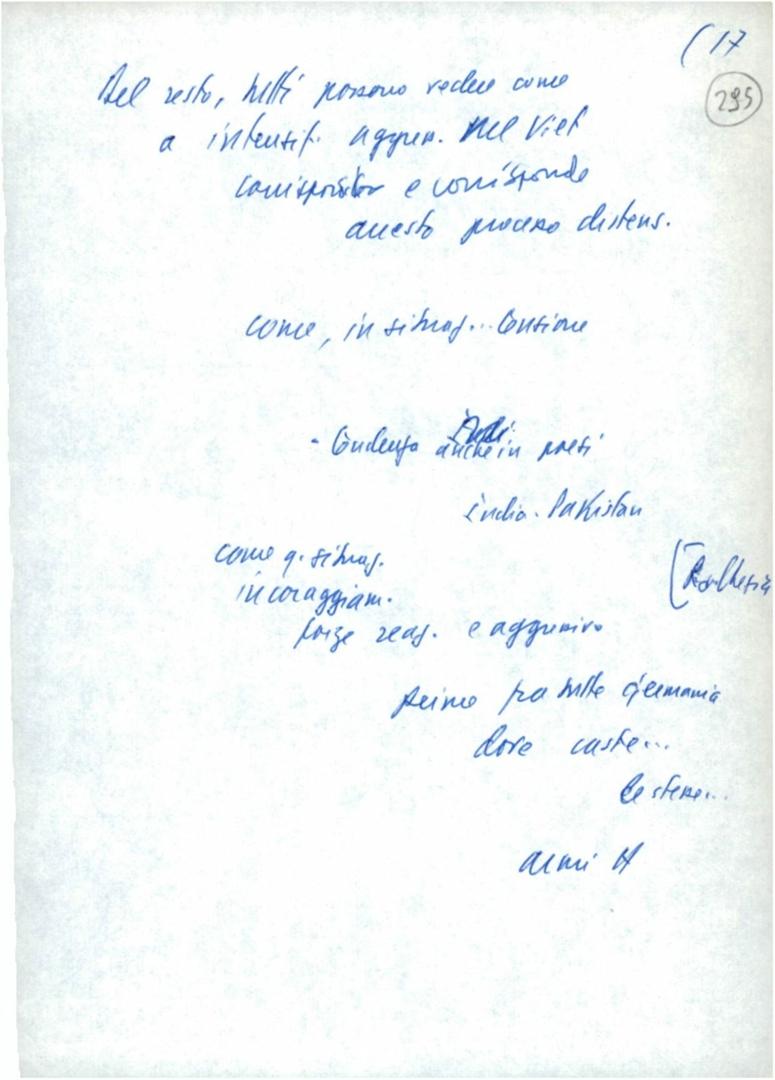 (17
295
Del resto, tutti possono vedere come
a intensif. aggress. nel Viet
corrisposto e corrisponde
arresto processo distens.
come, in situaz... tensione
- tendenza anche in paesi
India-Pakistan
come q. situaz.
incoraggiam.
[Rodhesia
forze reaz. e aggressive
prima fra tutte Germania
dove caste...
le stesse...
armi H